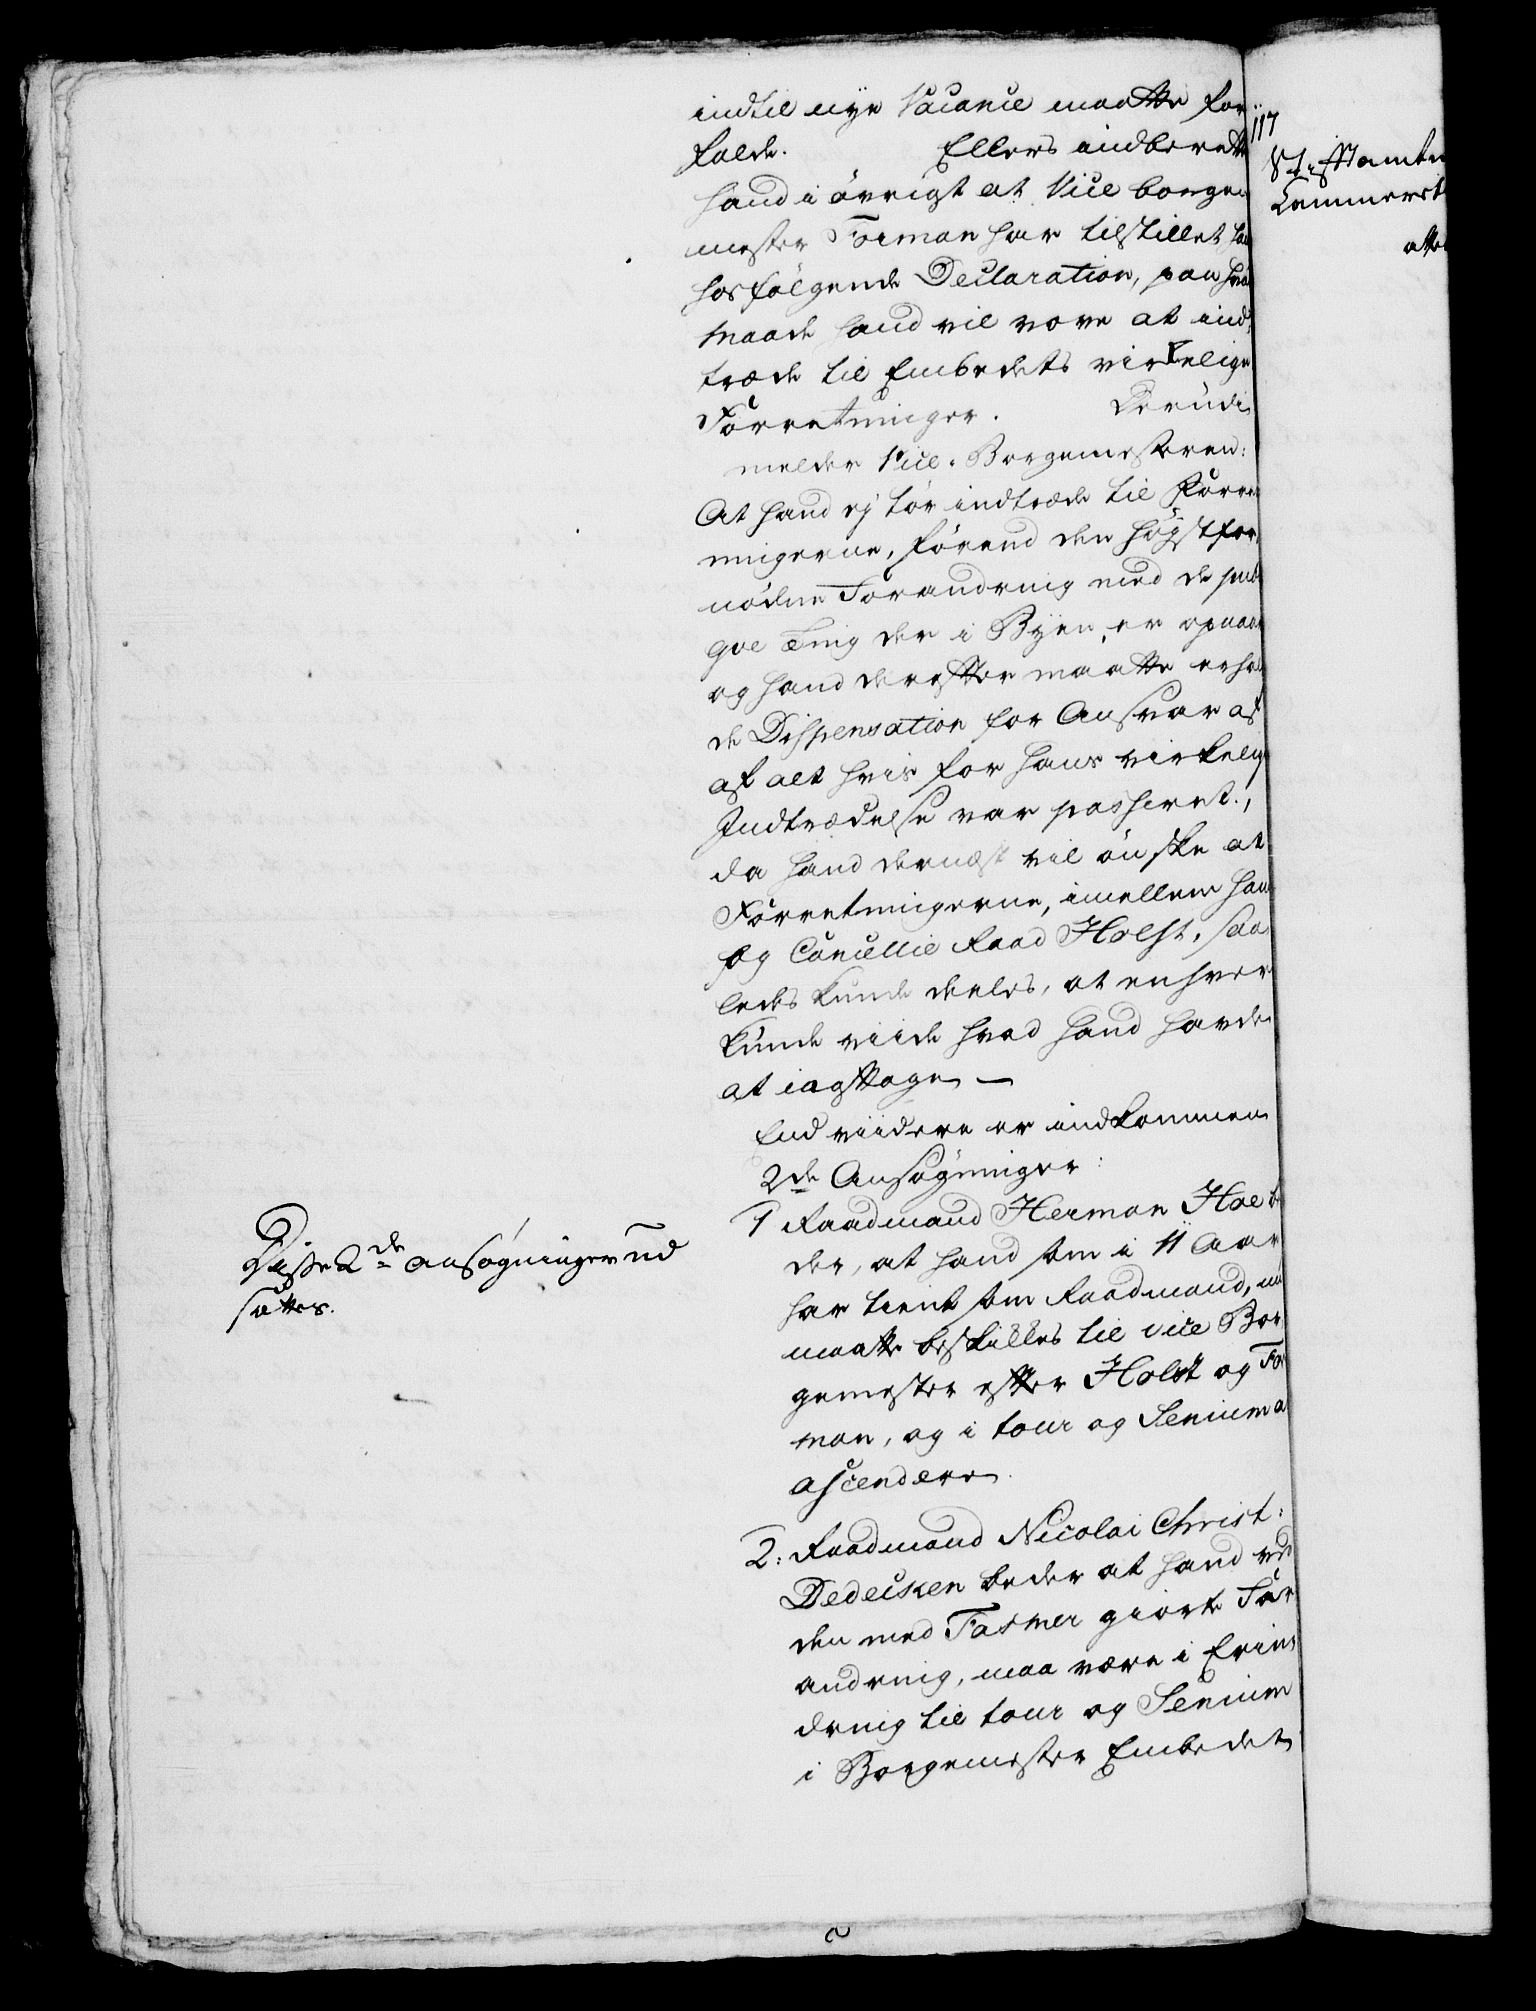 indtil nye Vacance maatte for
falde. Ellers indberette
hand i øvrigt at Vice borge
mester Forman har tilstillet ha
hosfølgende Declaration, paa hva
maade hand vil vove at ind
træde til Embedets virkelige
Forretninger. Derudi
melder Vice-Borgemesteren:
At hand ej tør indtræde til Forre
ningerne, førend den højst for
nødne Forandring med de
Ting der i Byen, er
og hand derefter maatte erhol
de Dispensation for Ansvar af
af alt hvis for hans virkelig
Indtrædelse var passeret.,
da hand dernæst vil ønske at
Forretningerne, imellem ham
og Cancellie Raad Holst, saa
ledes kunde deeles, at enhver
kunde viide hvad hand havde
at iagttage —
End viidere er indkommen
2de Ansøgninger:
1 Raadmand Herman Hoe be
der, at hand som i 11 Aar
har tient som Raadmand, nu
maatte beskikkes til vice Bor
gemester efter Holst og For
man, og i tour og Senium a
ascendere.
2: Raadmand Nicolai Christ:
Dedecken beder at hand ved
den med Fasmer giorte For
andring, maa være i Erin
dring til tour og Senium
i Borgemester Embedet
Disse 2de ansøgninger ud
sættes.
117
Stiftamtm
Cammerst